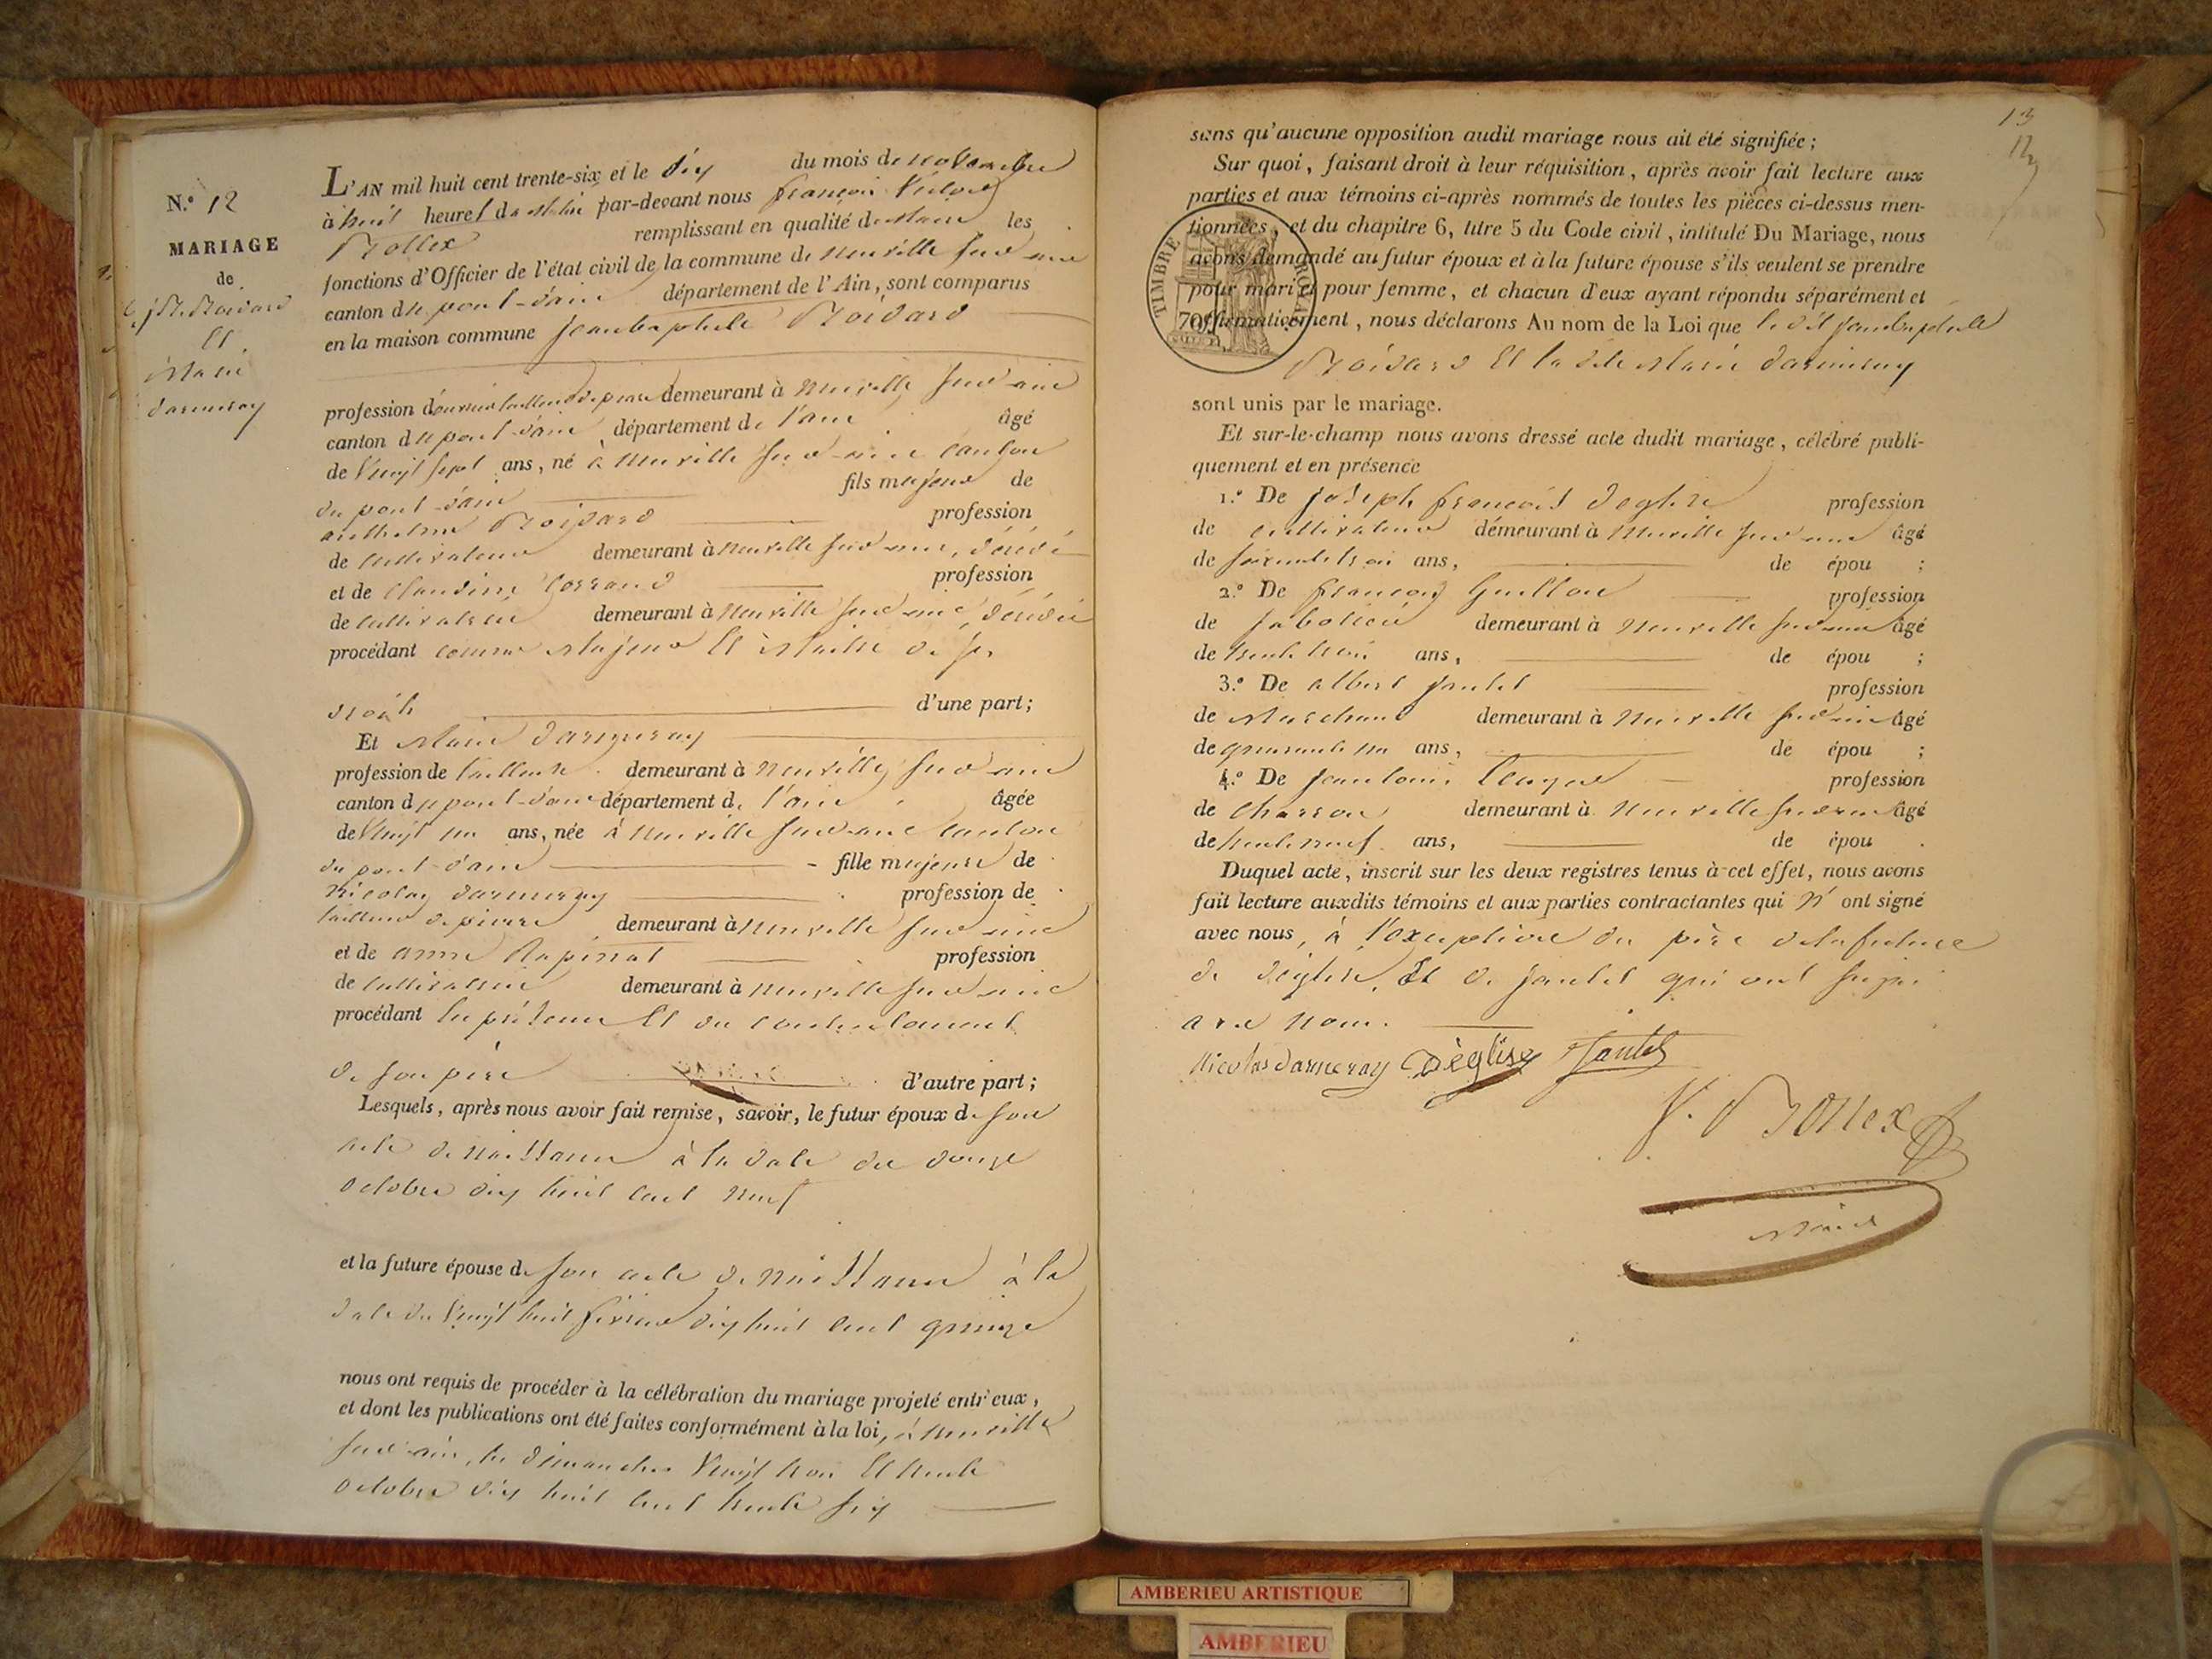 N.º 12
MARIAGE
de
J.B. Boidard
Et
Marie
darmeray
L'AN mil huit cent trente-six et le dix du mois de novembre
à huit heures du Matin par-devant nous françois Victor
Bollex remplissant en qualité de Maire les
fonctions d'Officier de l'état civil de la commune de neuville sur ain
canton de pont-d'ain département de l'Ain, sont comparus
en la maison commune jeanbaptiste Boidard
profession d'ouvrier tailleur de pierre demeurant à neuville sur ain
canton de pont-d'ain département de l'ain âgé
de Vingt sept ans, né à neuville sur ain canton
du pont-d'ain fils majeur de
anthelme Boidard profession
de cultivateur demeurant à neuville sur ain, décédé
et de Claudine profession
de cultivatrice demeurant à neuville sur ain, décédée
procédant comme Majeur Et Maître de ses
droits d'une part;
Et Marie darmeray
profession de tailleuse demeurant à neuville sur ain
canton de pont-d'ain département de l'ain âgée
de Vingt un ans, née à neuville sur ain canton
du pont-d'ain fille majeure de
Nicolas darmeray profession de
tailleur de pierre demeurant à neuville sur ain
et de anne Rapinat profession
de cultivatrice demeurant à neuville sur ain
procédant en présence Et du consentement
de son père d'autre part;
Lesquels, après nous avoir fait remise, savoir, le futur époux de son
acte de naissance à la date du douze
octobre dix huit cent neuf
et la future épouse de son acte de naissance à la
date du Vingt huit février dix huit cent quinze
nous ont requis de procéder à la célébration du mariage projeté entr'eux,
et dont les publications ont été faites conformément à la loi, à neuville
sur ain, les dimanches Vingt trois Et trente
octobre dix huit cent trente six
13
sans qu'aucune opposition audit mariage nous ait été signifiée;
Sur quoi, faisant droit à leur réquisition, après avoir fait lecture aux
parties et aux témoins ci-après nommés de toutes les pièces ci-dessus men-
tionnées, et du chapitre 6, titre 5 du Code civil, intitulé Du Mariage, nous
avons demandé au futur époux et à la future épouse s'ils veulent se prendre
pour mari et pour femme, et chacun d'eux ayant répondu séparément et
affirmativement, nous déclarons Au nom de la Loi que le dit jeanbaptiste
TIMBRE ROYAL
70
Boidard Et la dite Marie darmeray
sont unis par le mariage.
Et sur-le-champ nous avons dressé acte dudit mariage, célébré publi-
quement et en présence
1.º De joseph françois deglise profession
de cultivateur démeurant à neuville sur ain âgé
de soixante trois ans, de épou ;
2.º De françois Guillon profession
de sabotier demeurant à neuville sur ain âgé
de trente trois ans, de épou ;
3.º De albert jantet profession
de Marchand demeurant à neuville sur ain âgé
de quarante un ans, de épou ;
4.º De jean louis profession
de Charron demeurant à neuville sur ain âgé
de trente neuf ans, de épou .
Duquel acte, inscrit sur les deux registres tenus à cet effet, nous avons
fait lecture auxdits témoins et aux parties contractantes qui n' ont signé
avec nous, à l'exception du père de la future
de déglise, Et de jantet qui ont signé
avec nous.
Nicolas darmeray Déglise Jantet
V. Bollex
Maire
AMBERIEU ARTISTIQUE
AMBERIEU